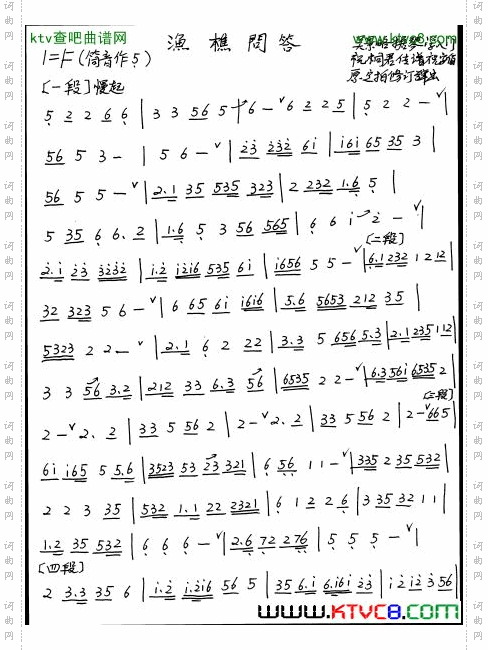 ktv查吧曲谱网
www.ktvc8.com
漁樵問答
1=F (筒音作5)
[一段]慢起
5 2 2 6 6 | 3 3 56 5 | 6 - ˅ 6 2 2 5 | 5 2 2 - ˅ |
56 5 3 - | 5 6 - ˅ | 23 232 61 | 161 65 35 3 |
56 5 5 - ˅ | 2.1 35 535 323 | 2 232 1.6 5 |
5 35 6 6. 2 | 1.6 5 3 56 565 | 6 6 i 2 - ˅ |
[二段]
2.1 23 3232 | 1.2 1216 535 61 | 1656 5 5 - ˅ | 6.1 232 1 2 12 |
32 323 5 6 - ˅ | 6 65 61 1616 | 5.6 5653 212 35 |
5323 2 2 - ˅ | 2.1 6 2 22 | 3.3 5 656 5.3 | 2.1 235 1 12 |
3 3 56 3.2 | 212 33 6.3 56 | 6535 2 2 - ˅ | 6.3 561 6535 2 |
[三段]
2 - ˅ 2. 2 | 33 5 56 2 | 2 - ˅ 2. 2 | 33 5 56 2 | 2 - ˅ 66 5 |
61 165 5 5.6 | 3523 53 23 321 | 6 56 1 1 - ˅ | 335 235 532 |
2 2 3 35 | 532 1.1 22 2321 | 6 1 2 2 6 | 3 35 32 1 1 |
1.2 35 532 | 6 6 6 - ˅ | 2.6 72 276 | 5 5 5 - ˅ |
[四段]
2 3.3 35 6 | 1.2 1.216 56 5 | 35 6.1 6.161 23 | 1 2 12 3 56 |
www.KTVC8.com
词曲网